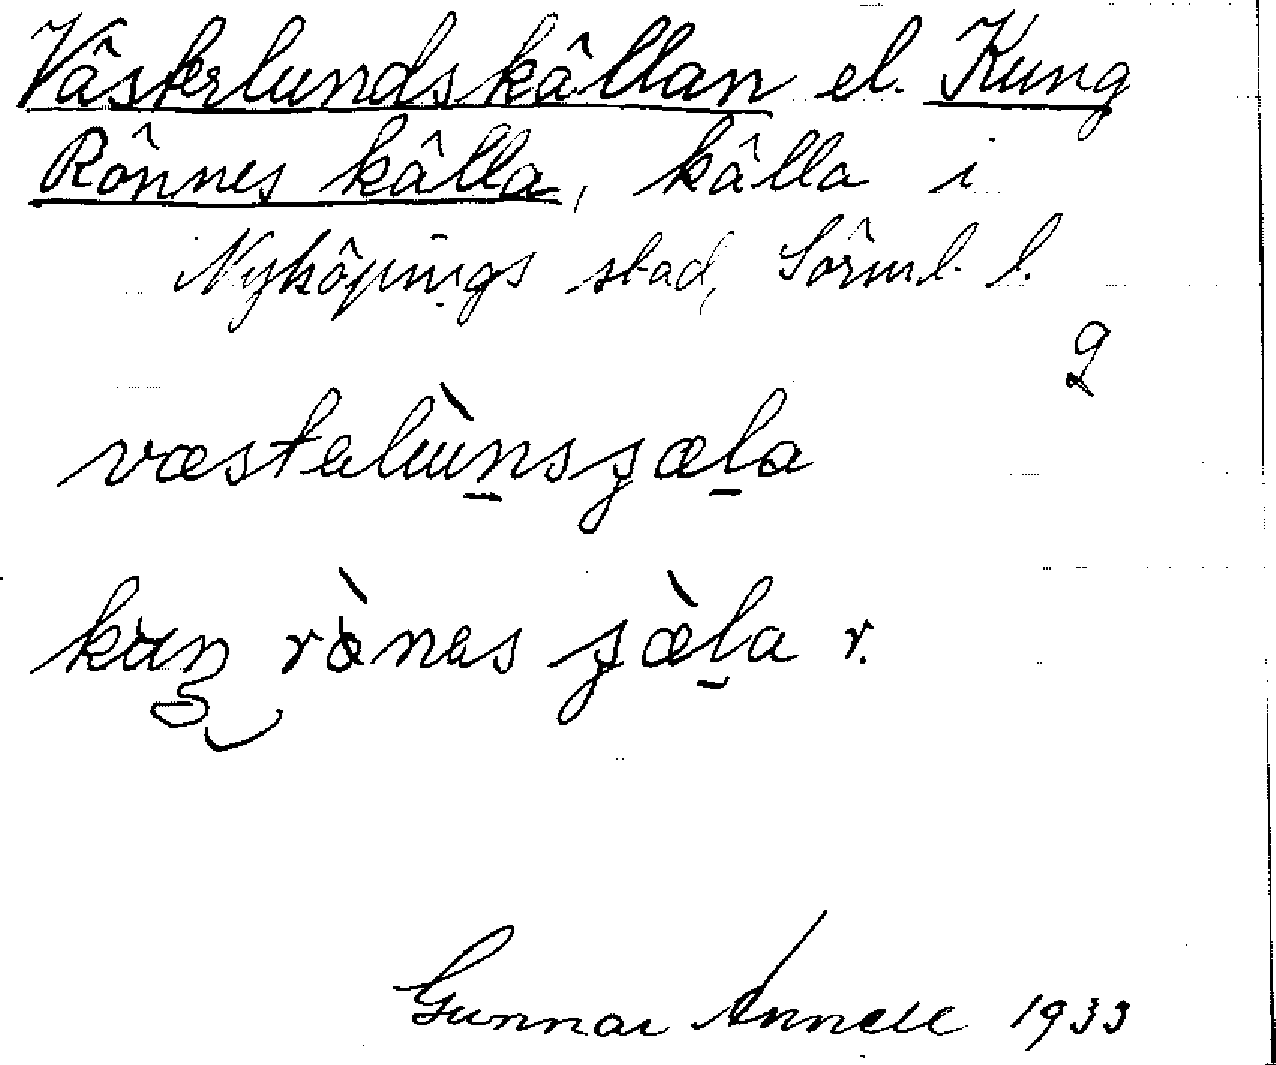 Västerlundskällan el. Kung
Rönnes källa, källa i
Nyköpings stad, Sörml. l.
væstalùnsɟæla
rònas ɟæ̀la r.
Gunnar Annell 1933